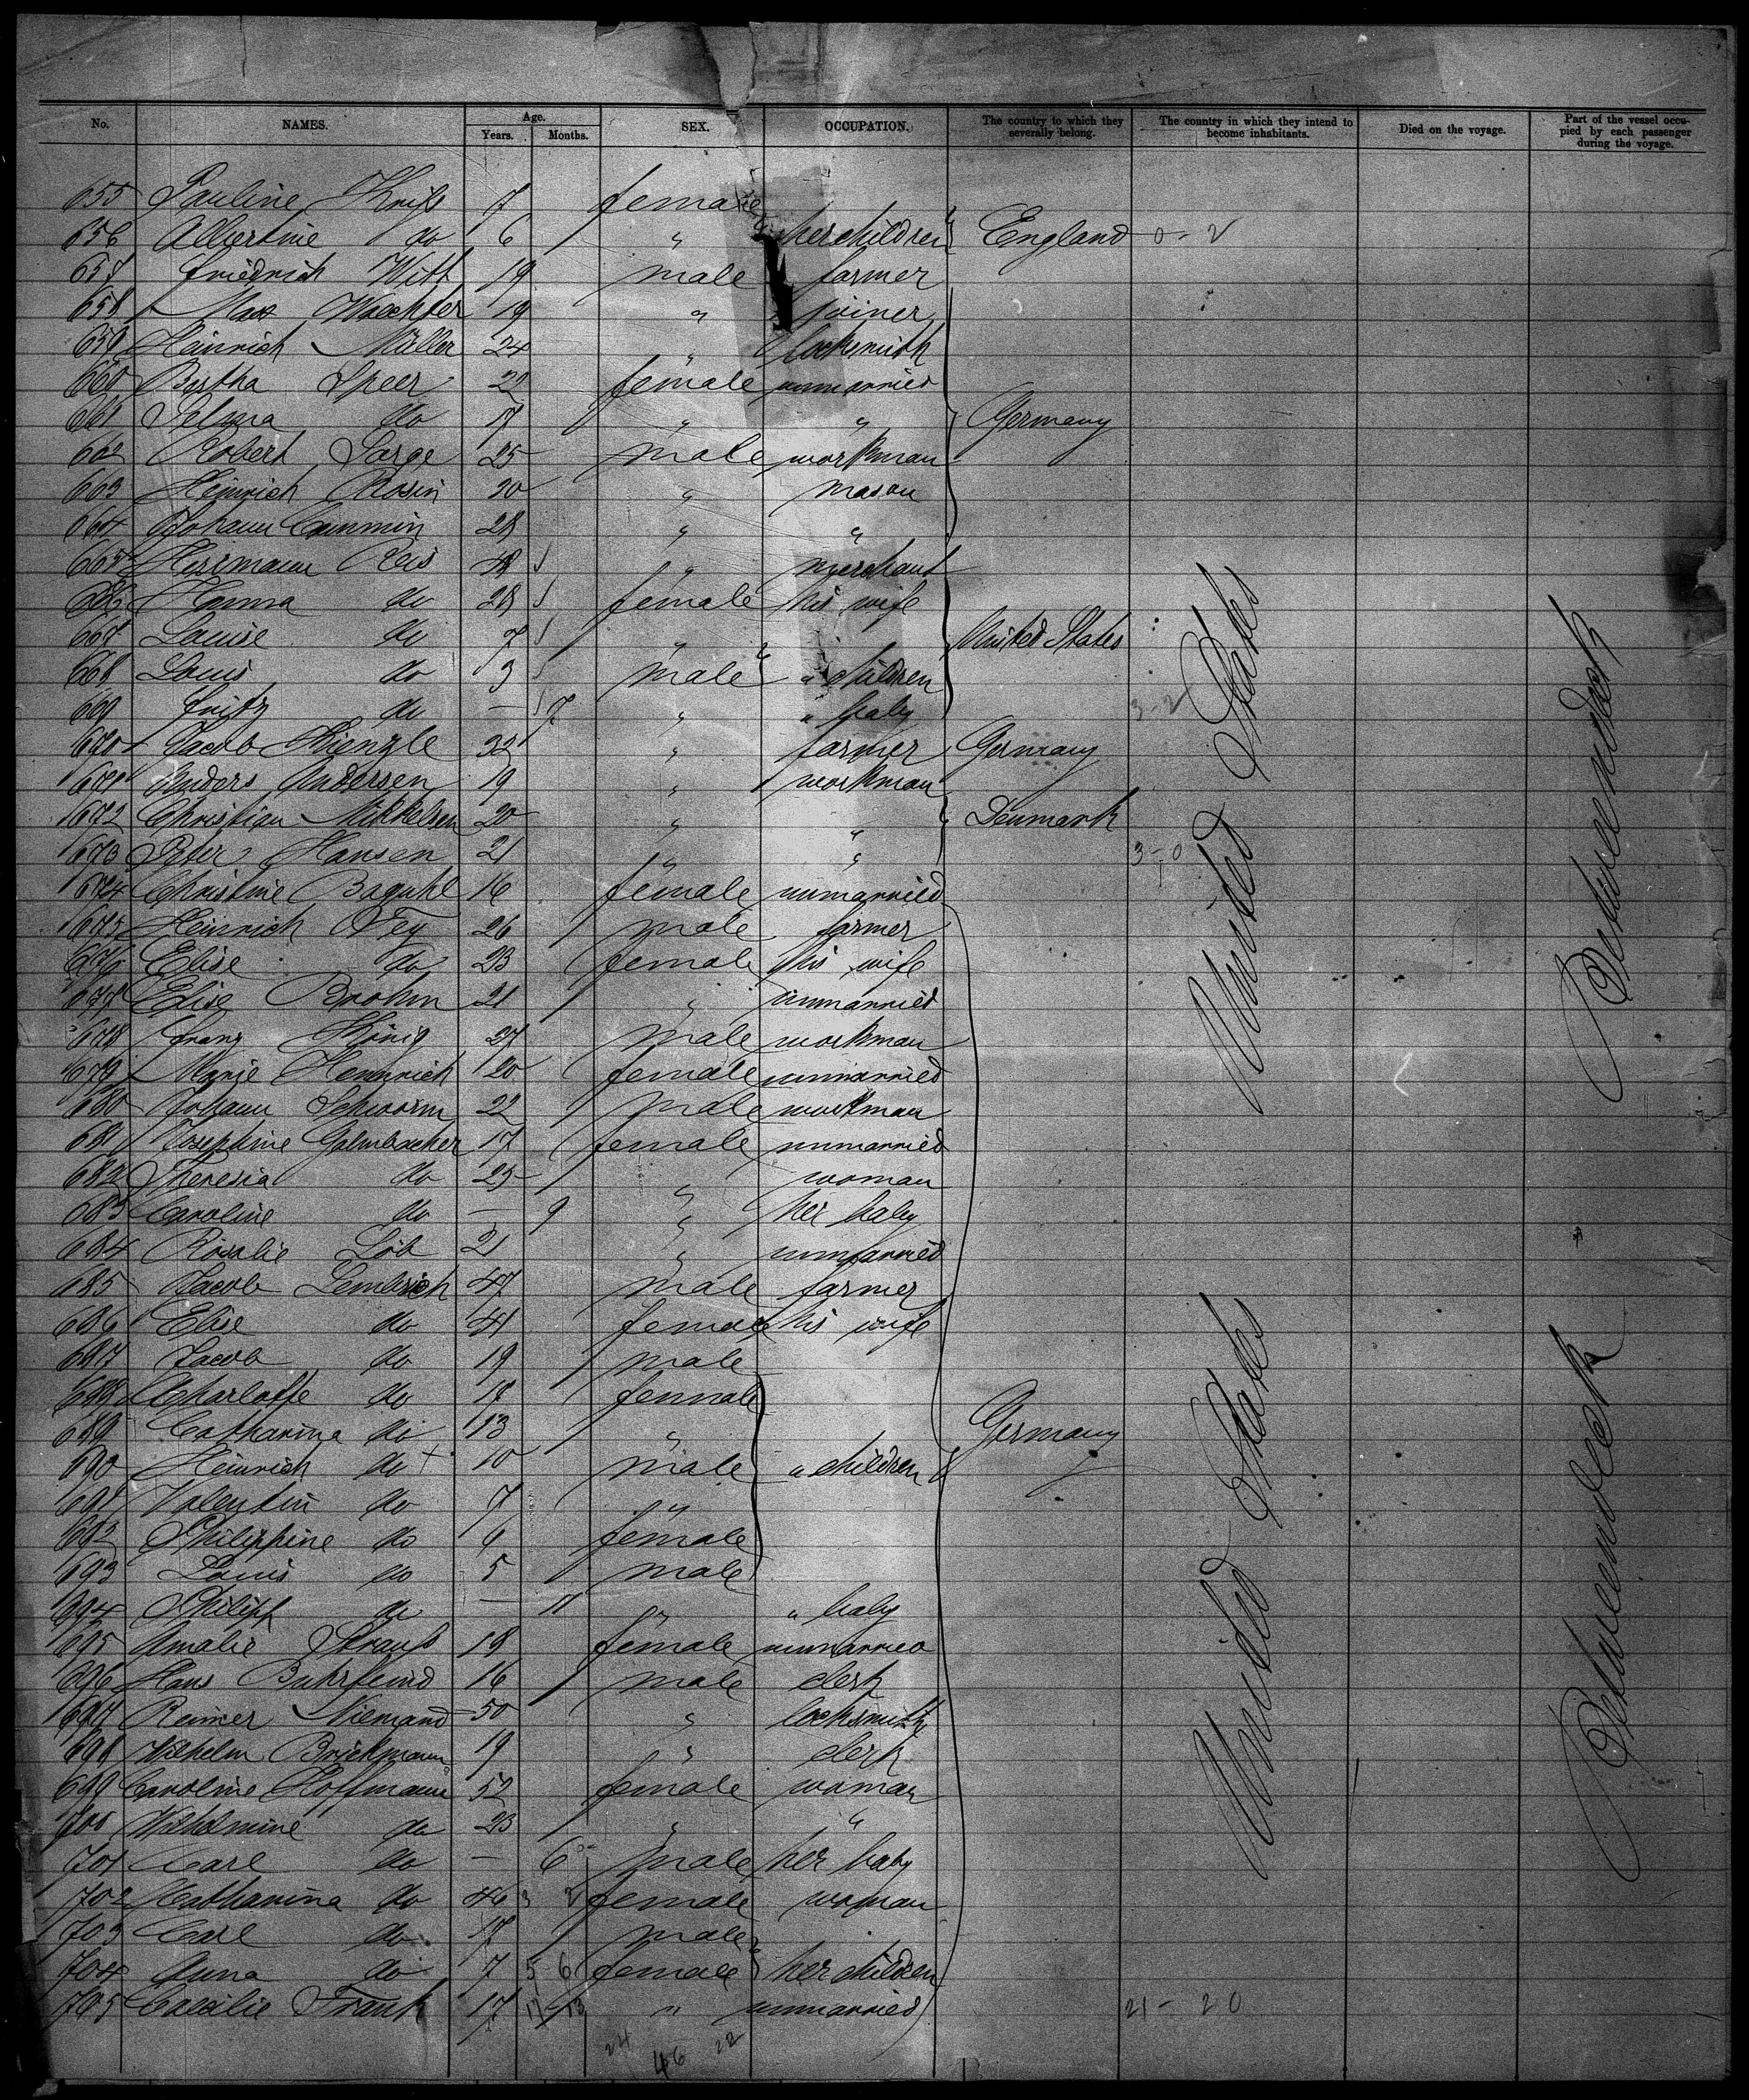 No. NAMES. Age. Years. Months. SEX. OCCUPATION. The country to which they severally belong. The country in which they intend to become inhabitants. Died on the voyage. Part of the vessel occupied by each passenger during the voyage.
655 Pauline 7 female
656 Albertine do 6 " her children England 0-2
657 Friedrich Witt 19 male farmer
658 Max Waechter 19 " joiner
659 Heinrich Müller 24 " locksmith
660 Bertha Speer 22 female unmarried
661 Selma do 17 " " Germany
662 Robert Sarge 25 male workman
663 Heinrich Rosin 20 " mason
664 Johann Cummin 28 " "
665 Herrmann Reis 48 " merchant
666 Hanna do 28 female his wife
667 Louise do 7 " United States
668 Louis do 3 male " children
669 Fritz do — 7 " " baby 3-2
670 Jacob Kiengle 32 " farmer Germany
671 Anders Andersen 19 " workman
672 Christian Mikkelsen 20 " " Denmark
673 Peter Hansen 21 " " 3-0
674 Christine Baguhl 16 female unmarried
675 Heinrich Fey 26 male farmer
676 Elise do 23 female his wife
677 Elise Brohm 21 " unmarried
678 Franz König 27 male workman
679 Marie Hennrich 20 female unmarried
680 Johann Schwarm 22 male workman
681 Josephine Galmbacher 17 female unmarried
682 Theresia do 25 " woman
683 Caroline do — 9 " her baby
684 Rosalie Löb 21 " unmarried
685 Jacob Lembrich 47 male farmer
686 Elise do 41 female his wife
687 Jacob do 19 male
688 Charlotte do 17 female
689 Catharina do 13 " Germany
690 Heinrich do 10 male " children
691 Valentin do 7 "
692 Philippine do 6 female
693 Louis do 5 male
694 Philipp do — 11 " " baby
695 Amalie Strauß 18 female unmarried
696 Hans Buhrfeind 16 male clerk
697 Reimer Niemand 50 " locksmith
698 Wilhelm Brickmann 19 " clerk
699 Caroline Hoffmann 52 female woman
700 Wilhelmine do 23 " "
701 Carl do — 6 male her baby
702 Catharina do 46 female woman
703 Carl do 17 male
704 Anna do 7 female her children
705 Caecilie Frank 17 " unmarried 21-20
24 46 22
United States
United States
Betweendeck
Betweendeck